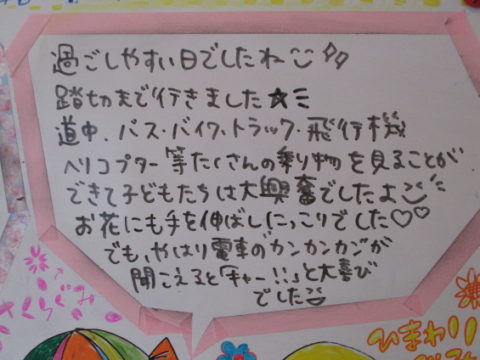 過ごしやすい日でしたね
踏切まで行きました★
道中、バス・バイク・トラック・飛行機
ヘリコプター等たくさんの乗り物を見ることが
できて子どもたちは大興奮でしたよ
お花にも手を伸ばしにっこりでした♡♡
でも、やはり電車のカンカンカンが
聞こえると「キャー!!」と大喜び
でした
さくらぐみ
ひまわり